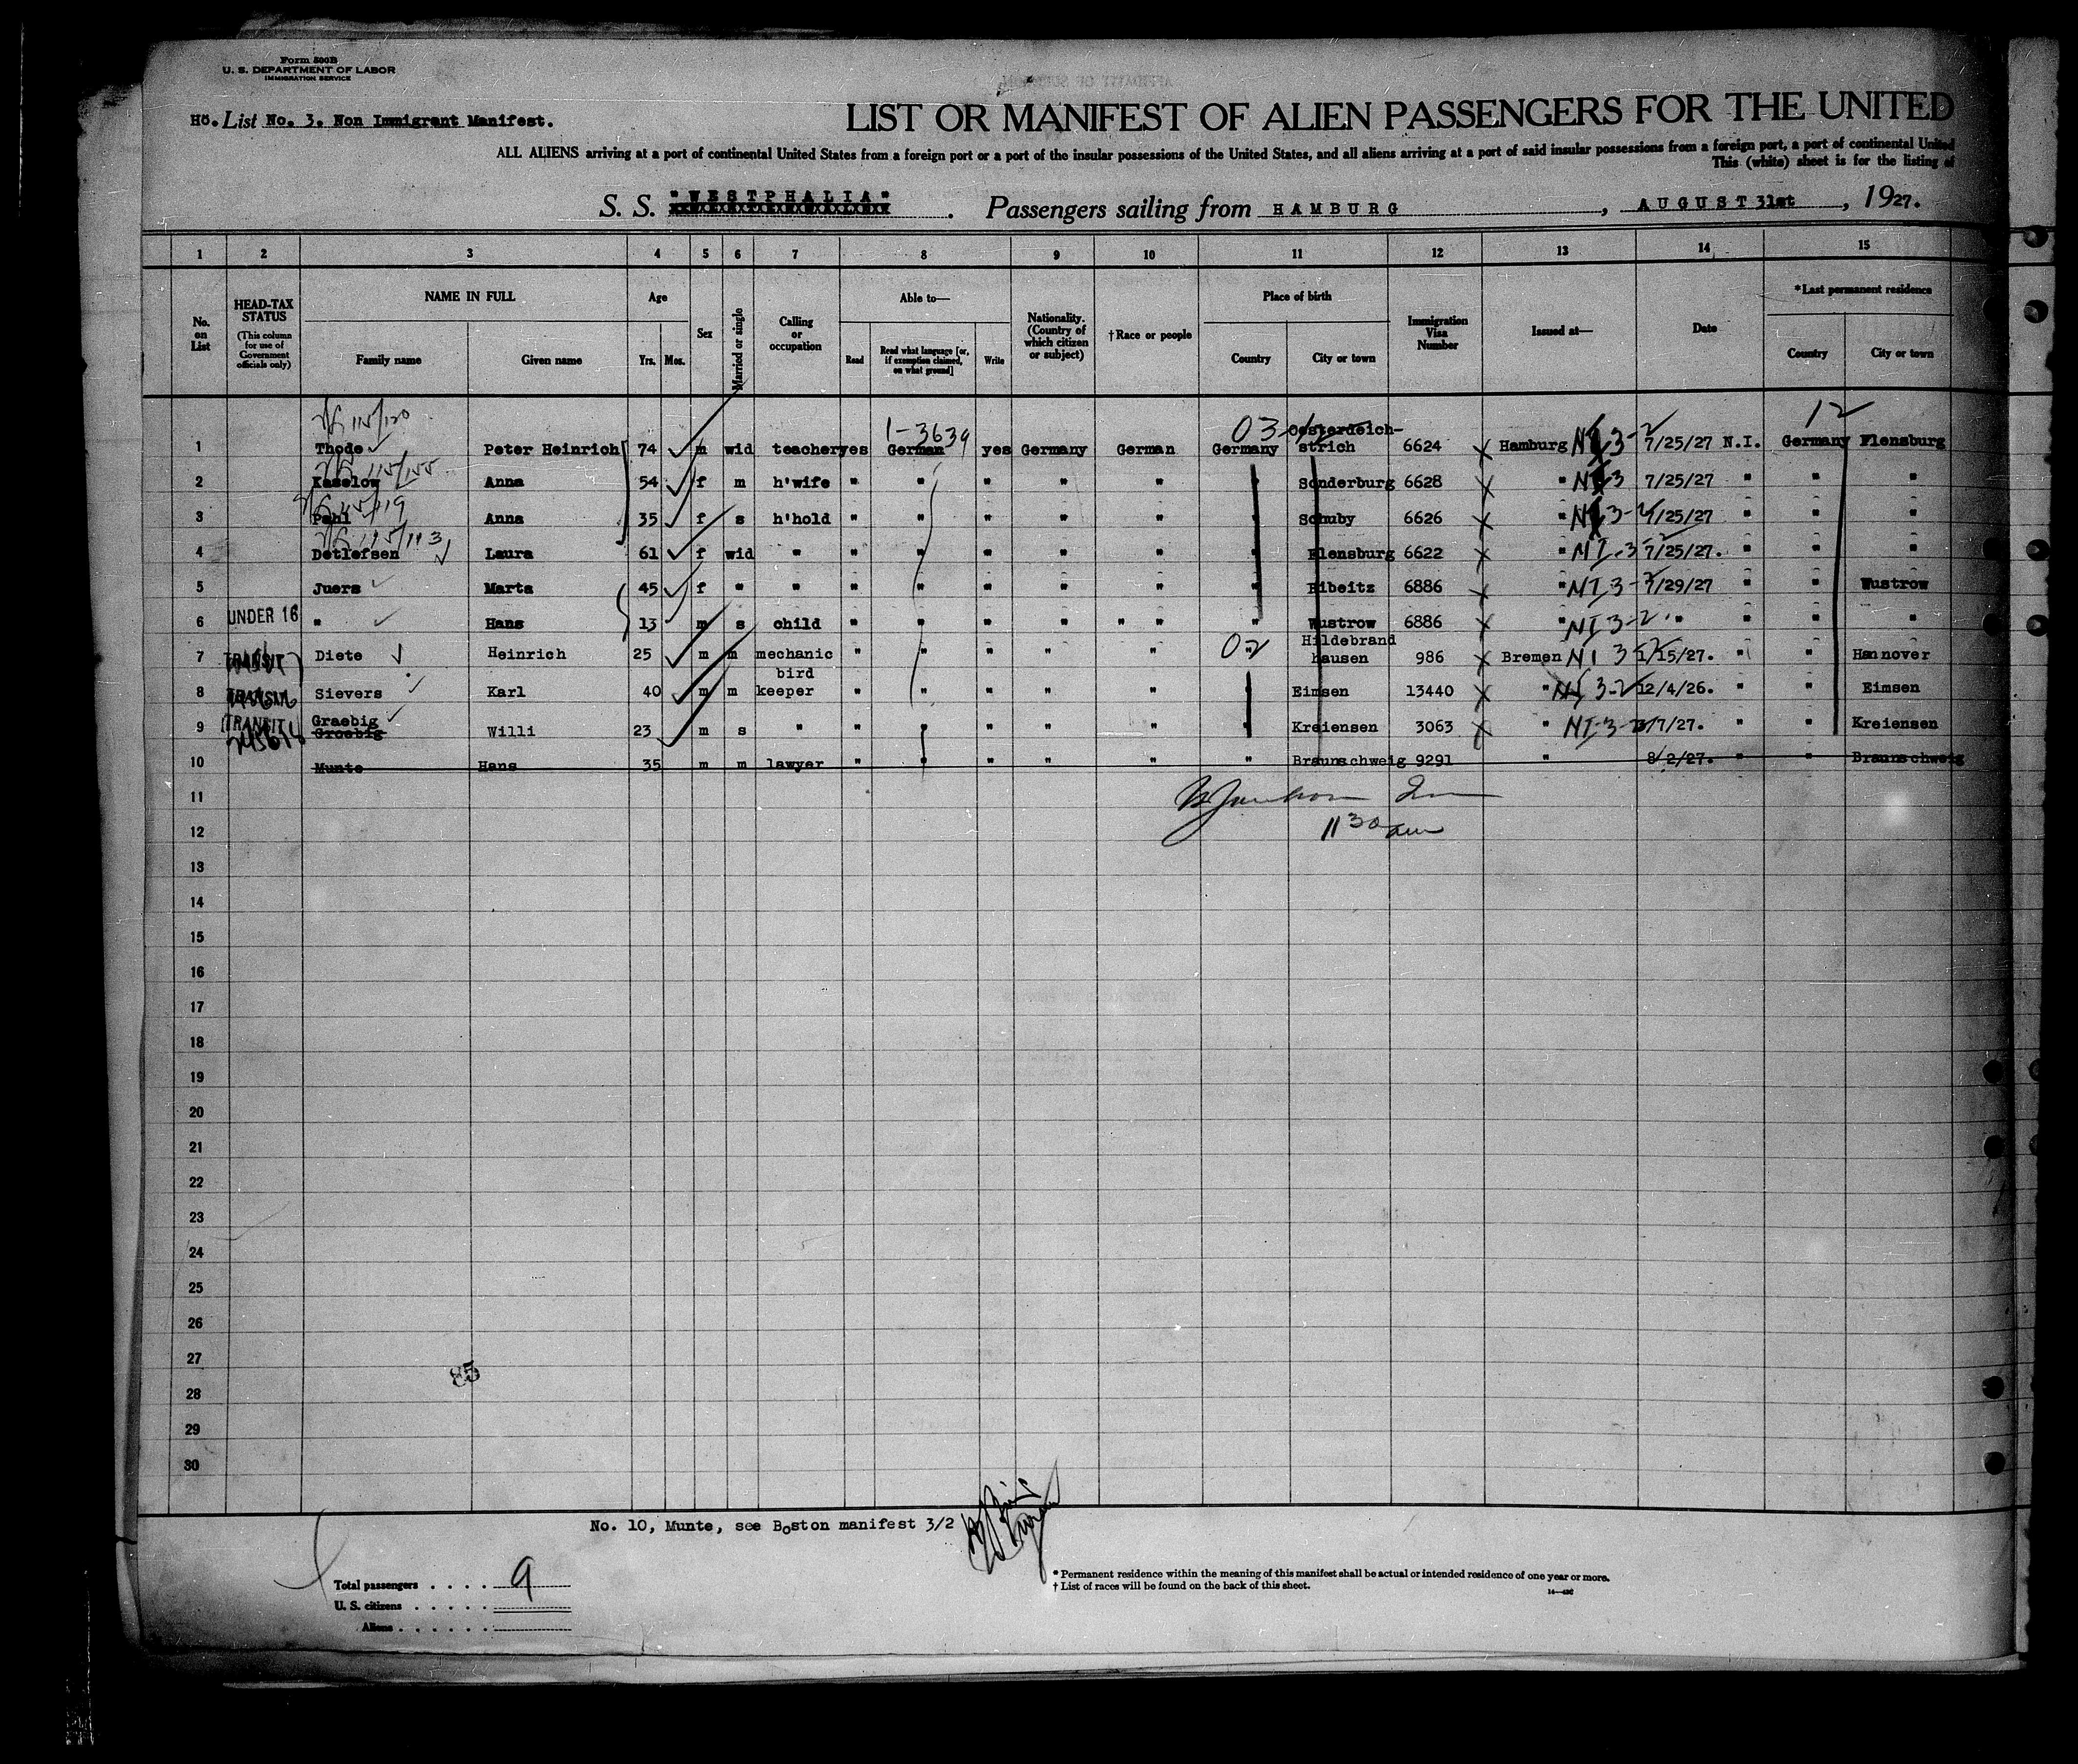 Form 500B
U. S. DEPARTMENT OF LABOR
IMMIGRATION SERVICE
Hö. List No. 3. Non Immigrant Manifest.
LIST OR MANIFEST OF ALIEN PASSENGERS FOR THE UNITED
ALL ALIENS arriving at a port of continental United States from a foreign port or a port of the insular possessions of the United States, and all aliens arriving at a port of said insular possessions from a foreign port, a port of continental United
This (white) sheet is for the listing of
S. S. "WESTPHALIA". Passengers sailing from HAMBURG, AUGUST 31st, 1927.
1 2 3 4 5 6 7 8 9 10 11 12 13 14 15
No. on List
HEAD-TAX STATUS (This column for use of Government officials only)
NAME IN FULL Family name Given name
Age Yrs. Mos.
Sex
Married or single
Calling or occupation
Able to— Read Read what language [or, if exemption claimed, on what ground] Write
Nationality. (Country of which citizen or subject)
†Race or people
Place of birth Country City or town
Immigration Visa Number
Issued at—
Date
*Last permanent residence Country City or town
115/120 1-3639 03 12
1 Thode Peter Heinrich 74 m wid teacher yes German yes Germany German Germany Oesterdeich-strich 6624 Hamburg NI 3-2 7/25/27 N.I. Germany Flensburg
115/155
2 Kaselow Anna 54 f m h'wife " " " " " " Sonderburg 6628 " NI 3 7/25/27 " " "
115/119
3 Pahl Anna 35 f s h'hold " " " " " " Schuby 6626 " NI 3-2 7/25/27 " " "
115/113
4 Detlefsen Laura 61 f wid " " " " " " " Flensburg 6622 " NI-3-2 7/25/27. " " "
5 Juers Marta 45 f " " " " " " " " Ribeitz 6886 " NI 3-2 7/29/27 " " Wustrow
6 UNDER 16 " Hans 13 m s child " " " " " " " Wustrow 6886 " NI 3-2 " " " "
7 TRANSIT Diete Heinrich 25 m m mechanic " " " " " 02 " Hildebrand hausen 986 Bremen NI 3 1/15/27. " " Hannover
8 TRANSIT Sievers Karl 40 m m bird keeper " " " " " " Eimsen 13440 " NI 3-2 12/4/26. " " Eimsen
9 TRANSIT Graebig Groebig Willi 23 m s " " " " " " " Kreiensen 3063 " NI-3-2 3/7/27. " " Kreiensen
10 Munte Hans 35 m m lawyer " " " " " " Braunschweig 9291 " 8/2/27. " " Braunschweig
11
12 11 30 am
13
14
15
16
17
18
19
20
21
22
23
24
25
26
27
85
28
29
30
No. 10, Munte, see Boston manifest 3/2
Total passengers . . . . 9
U. S. citizens . . . . .
Aliens . . . . . .
* Permanent residence within the meaning of this manifest shall be actual or intended residence of one year or more.
† List of races will be found on the back of this sheet.